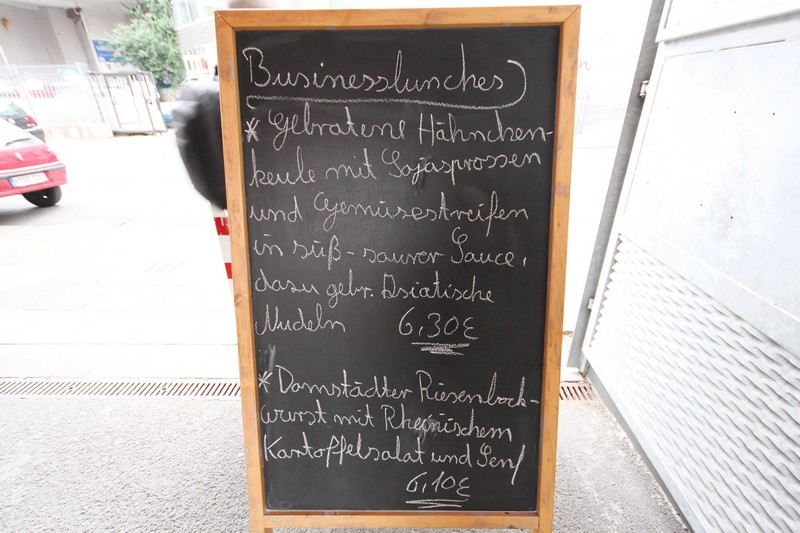 Businesslunches
* Gebratene Hähnchen-
keule mit Sojasprossen
und Gemüsestreifen
in süß-saurer Sauce,
dazu gebr. Asiatische
Nudeln 6,30€
* Darmstädter Riesenbock-
wurst mit Rheinischem
Kartoffelsalat und Senf
6,10€